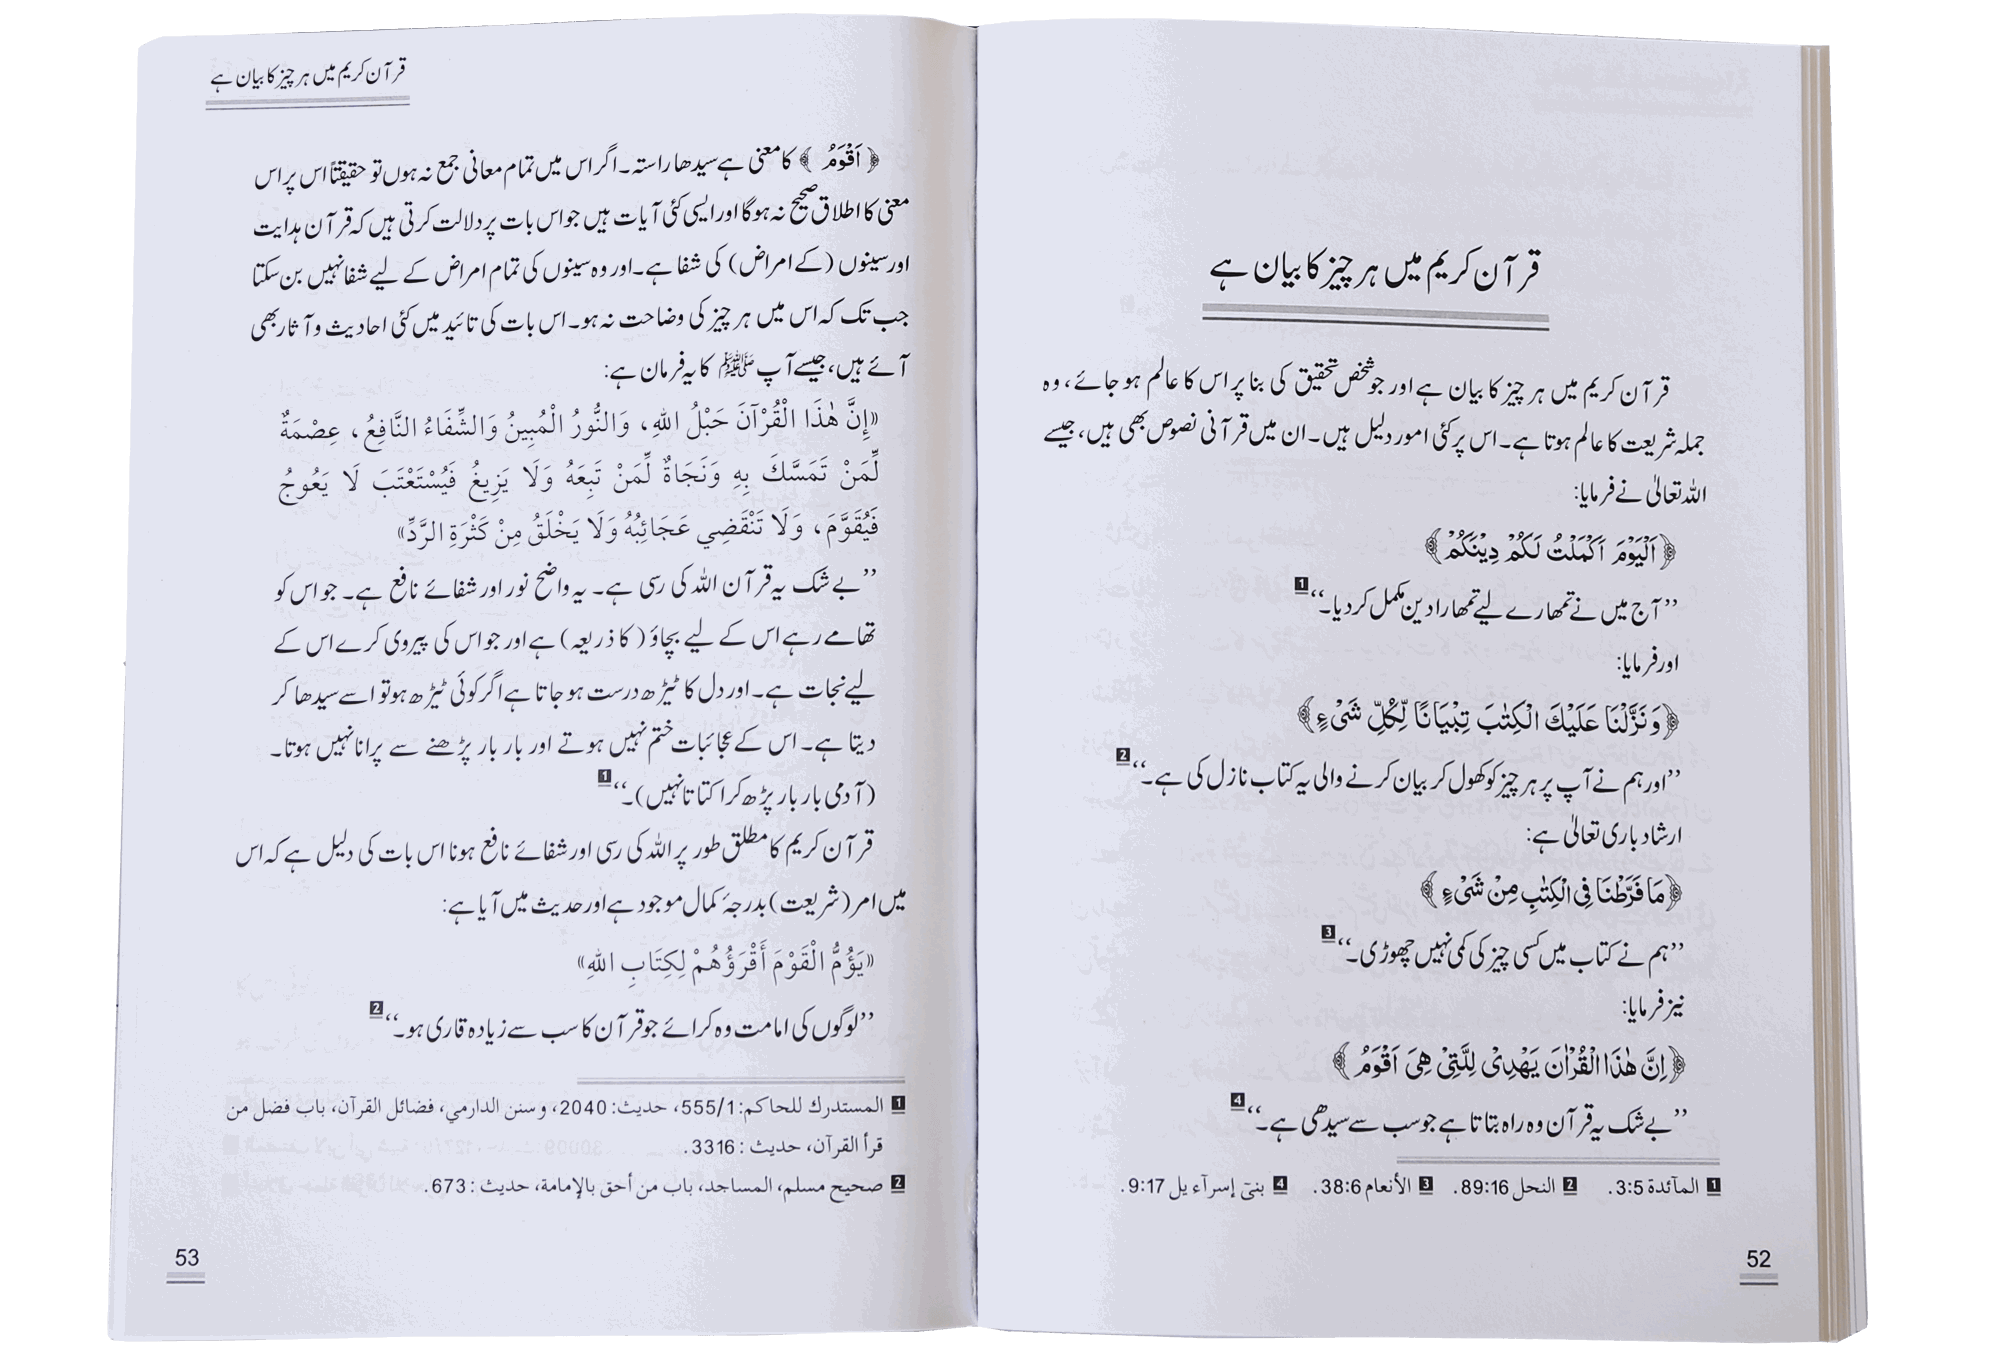 قرآن کریم میں ہر چیز کا بیان ہے
قرآن کریم میں ہر چیز کا بیان ہے اور جو شخص تحقیق کی بنا پر اس کا عالم ہو جائے، وہ
جملہ شریعت کا عالم ہوتا ہے۔ اس پر کئی امور دلیل ہیں۔ ان میں قرآنی نصوص بھی ہیں، جیسے
اللہ تعالیٰ نے فرمایا:
﴿اَلْیَوْمَ اَكْمَلْتُ لَكُمْ دِیْنَكُمْ﴾
’’آج میں نے تمھارے لیے تمھارا دین مکمل کر دیا۔‘‘ 1
اور فرمایا:
﴿وَ نَزَّلْنَا عَلَیْكَ الْكِتٰبَ تِبْیَانًا لِّكُلِّ شَیْءٍ﴾
’’اور ہم نے آپ پر ہر چیز کو کھول کر بیان کرنے والی یہ کتاب نازل کی ہے۔‘‘ 2
ارشاد باری تعالیٰ ہے:
﴿مَا فَرَّطْنَا فِی الْكِتٰبِ مِنْ شَیْءٍ﴾
’’ہم نے کتاب میں کسی چیز کی کمی نہیں چھوڑی۔‘‘ 3
نیز فرمایا:
﴿اِنَّ هٰذَا الْقُرْاٰنَ یَهْدِیْ لِلَّتِیْ هِیَ اَقْوَمُ﴾
’’بے شک یہ قرآن وہ راہ بتاتا ہے جو سب سے سیدھی ہے۔‘‘ 4
1 المآئدة 3:5. 2 النحل 89:16. 3 الأنعام 38:6. 4 بنیٓ إسرآء یل 9:17.
52
قرآن کریم میں ہر چیز کا بیان ہے
﴿اَقْوَمُ﴾ کا معنی ہے سیدھا راستہ۔ اگر اس میں تمام معانی جمع نہ ہوں تو حقیقتاً اس پر اس
معنی کا اطلاق صحیح نہ ہوگا اور ایسی کئی آیات ہیں جو اس بات پر دلالت کرتی ہیں کہ قرآن ہدایت
اور سینوں (کے امراض) کی شفا ہے۔ اور وہ سینوں کی تمام امراض کے لیے شفا نہیں بن سکتا
جب تک کہ اس میں ہر چیز کی وضاحت نہ ہو۔ اس بات کی تائید میں کئی احادیث و آثار بھی
آئے ہیں، جیسے آپ ﷺ کا یہ فرمان ہے:
«إِنَّ هٰذَا الْقُرْآنَ حَبْلُ اللهِ، وَالنُّورُ الْمُبِينُ وَالشِّفَاءُ النَّافِعُ، عِصْمَةٌ
لِّمَنْ تَمَسَّكَ بِهِ وَنَجَاةٌ لِّمَنْ تَبِعَهُ وَلَا يَزِيغُ فَيُسْتَعْتَبَ لَا يَعُوجُ
فَيُقَوَّمَ، وَلَا تَنْقَضِي عَجَائِبُهُ وَلَا يَخْلَقُ مِنْ كَثْرَةِ الرَّدِّ»
’’بے شک یہ قرآن اللہ کی رسی ہے۔ یہ واضح نور اور شفائے نافع ہے۔ جو اس کو
تھامے رہے اس کے لیے بچاؤ (کا ذریعہ) ہے اور جو اس کی پیروی کرے اس کے
لیے نجات ہے۔ اور دل کا ٹیڑھ درست ہو جاتا ہے اگر کوئی ٹیڑھ ہو تو اسے سیدھا کر
دیتا ہے۔ اس کے عجائبات ختم نہیں ہوتے اور بار بار پڑھنے سے پرانا نہیں ہوتا۔
(آدمی بار بار پڑھ کر اکتاتا نہیں)۔‘‘ 1
قرآن کریم کا مطلق طور پر اللہ کی رسی اور شفائے نافع ہونا اس بات کی دلیل ہے کہ اس
میں امر (شریعت) بدرجۂ کمال موجود ہے اور حدیث میں آیا ہے:
«يَؤُمُّ الْقَوْمَ أَقْرَؤُهُمْ لِكِتَابِ اللهِ»
’’لوگوں کی امامت وہ کرائے جو قرآن کا سب سے زیادہ قاری ہو۔‘‘ 2
1 المستدرك للحاكم: 555/1، حديث: 2040، وسنن الدارمي، فضائل القرآن، باب فضل من
قرأ القرآن، حديث: 3316.
2 صحيح مسلم، المساجد، باب من أحق بالإمامة، حديث: 673.
53